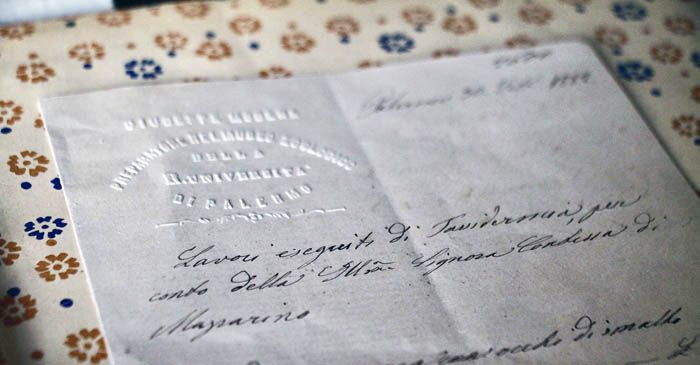 GIUSEPPE MODENA
PREPARATORE NEL MUSEO ZOOLOGICO
DELLA
R. UNIVERSITA'
DI PALERMO
Palermo 30
Lavori eseguiti di Tassidermia, per
conto della Illma Signora Contessa di
Mazzarino
occhio di smalto